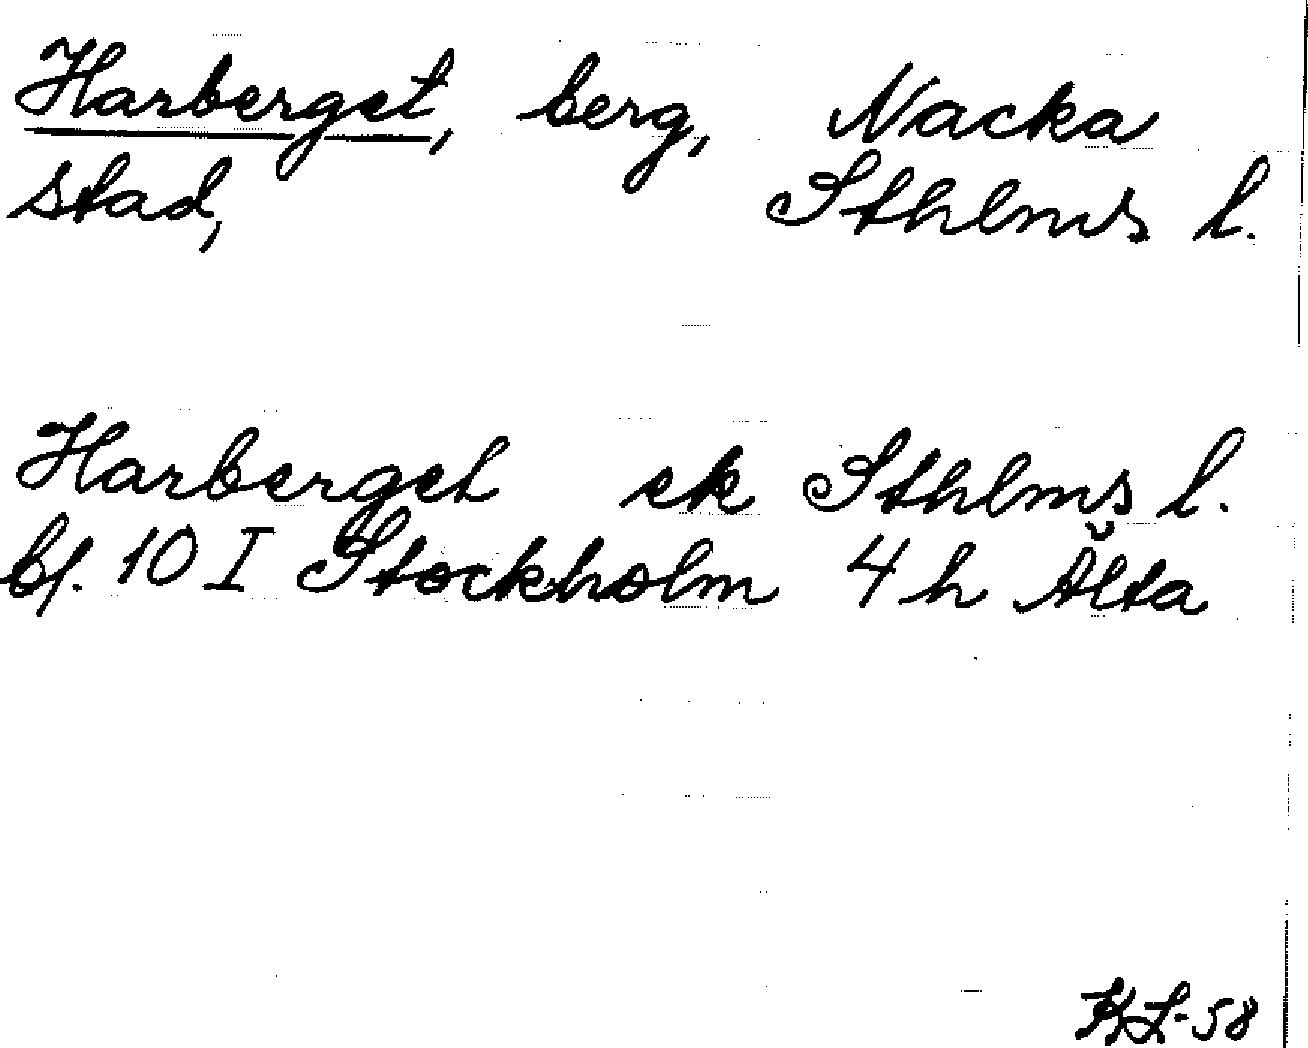 Harberget, berg, Nacka
stad, Sthlms l.
Harberget ek Sthlms l.
bl. 10 I Stockholm 4 h Älta
KL-58